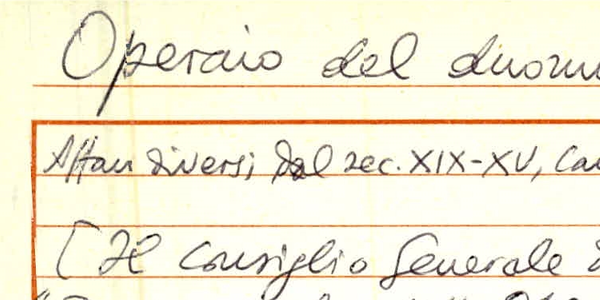 Operaio del duomo
Affari diversi dal sec. XIX-XV,
[Il Consiglio Generale